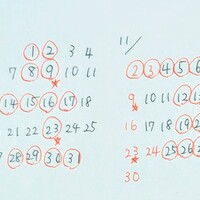 1 2 3 4
7 8 9 10 11
14 15 16 17 18
21 22 23 24 25
28 29 30 31
11/
2 3 4 5 6
9 10 11 12 13
16 17 18 19 2
23 24 25 26 2
30